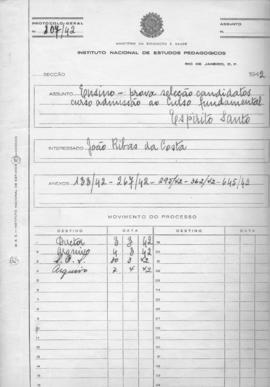 PROTOCOLO GERAL
N. 207/42
ASSUNTO
N.
MINISTÉRIO DA EDUCAÇÃO E SAÚDE
INSTITUTO NACIONAL DE ESTUDOS PEDAGÓGICOS
RIO DE JANEIRO, D. F.
SECCÃO
1942
ASSUNTO: Ensino - prova seleção candidatos
curso admissão ao curso fundamental
Espírito Santo
INTERESSADO: João Ribas da Costa
ANEXOS: 133/42 - 267/42 - 295/42 - 362/42 - 645/42
MOVIMENTO DO PROCESSO
DESTINO DESTINO
Diretor 3 3 42
Arquivo 4 3 42
30 3 42
Arquivo 7 4 42